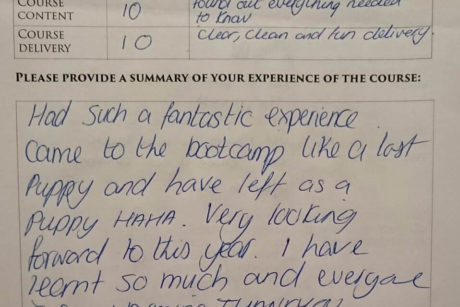 COURSE CONTENT 10 found out everything needed
to know
COURSE DELIVERY 10 clear, clean and fun delivery.
PLEASE PROVIDE A SUMMARY OF YOUR EXPERIENCE OF THE COURSE:
Had such a fantastic experience.
Came to the bootcamp like a lost
Puppy and have left as a
Puppy HAHA. Very looking
forward to this year. I have
learnt so much and everyone